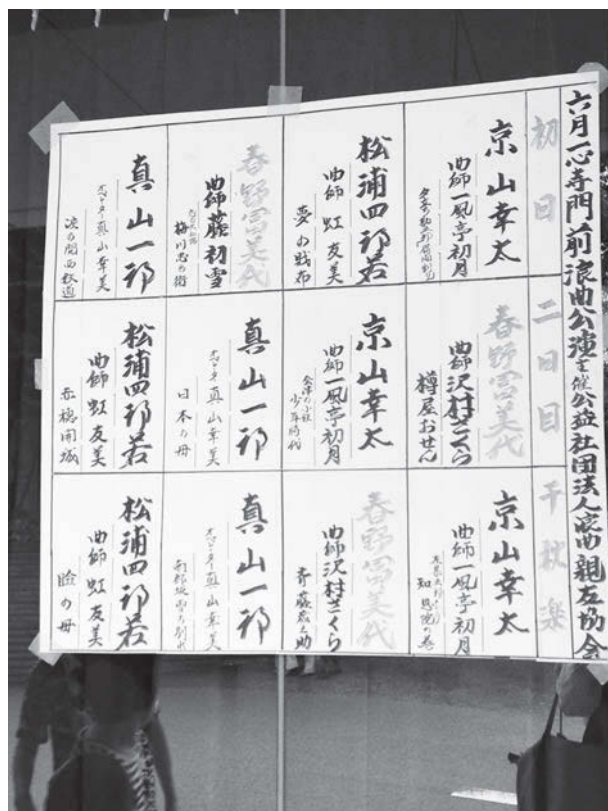 六月一心寺門前浪曲公演主催公益社団法人浪曲親友協会
初日
京山幸太
曲師 一風亭初月
松浦四郎若
曲師 虹友美
夢の財布
春野冨美代
曲師 藤初雪
梅川忠兵衛
真山一郎
オペレーター 真山幸美
涙の関西鉄道
二日目
春野冨美代
曲師 沢村さくら
樽屋おせん
京山幸太
曲師 一風亭初月
会津の小鉄
少年時代
真山一郎
オペレーター 真山幸美
日本の母
松浦四郎若
曲師 虹友美
赤穂開城
千秋楽
京山幸太
曲師 一風亭初月
知恩院の巻
春野冨美代
曲師 沢村さくら
斉藤蔵之助
真山一郎
オペレーター 真山幸美
刃傷松の廊下
松浦四郎若
曲師 虹友美
瞼の母